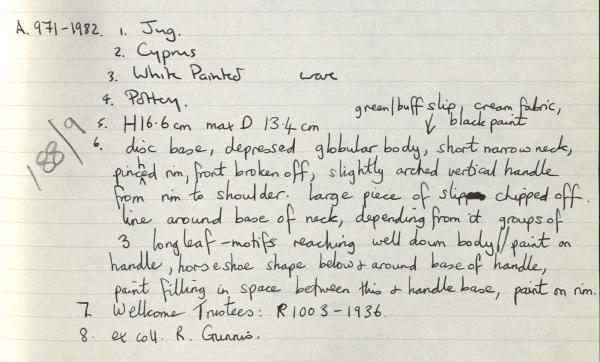 A. 971-1982. 1. Jug.
2. Cyprus
3. White Painted ware
4. Pottery.
green/buff slip, cream fabric,
black paint
5. H16.6cm max D 13.4cm
188/9
6. disc base, depressed globular body, short narrow neck,
pinched rim, front broken off, slightly arched vertical handle
from rim to shoulder. Large piece of slip chipped off.
line around base of neck, depending from it groups of
3 long leaf-motifs reaching well down body // paint on
handle, horseshoe shape below & around base of handle,
paint filling in space between this & handle base, paint on rim.
7. Wellcome Trustees: R1003-1936.
8. ex coll. R. Gunnis.